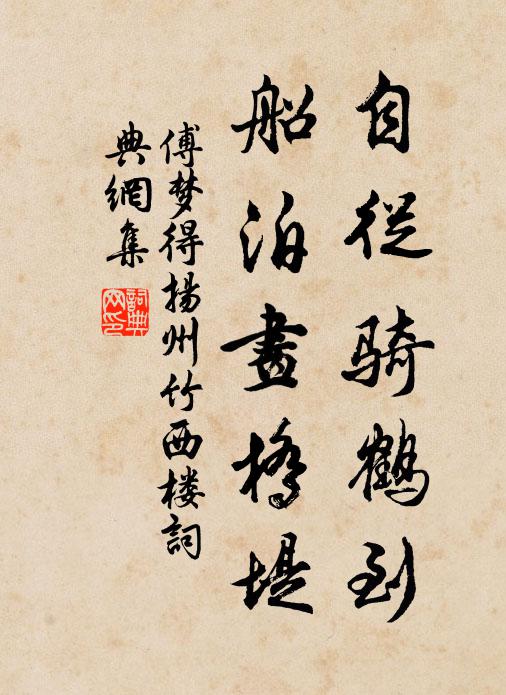 自從騎鶴到
船泊畫橋堤
傅梦得揚州竹西楼詞
典網集
詞典
网印